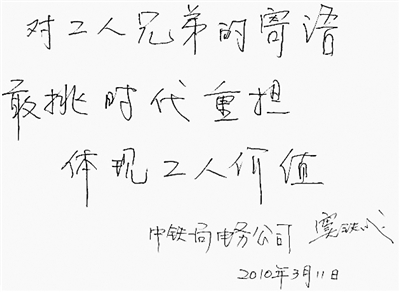 对工人兄弟的寄语
敢挑时代重担
体现工人价值
中铁局电务公司 窦铁成
2010年3月11日